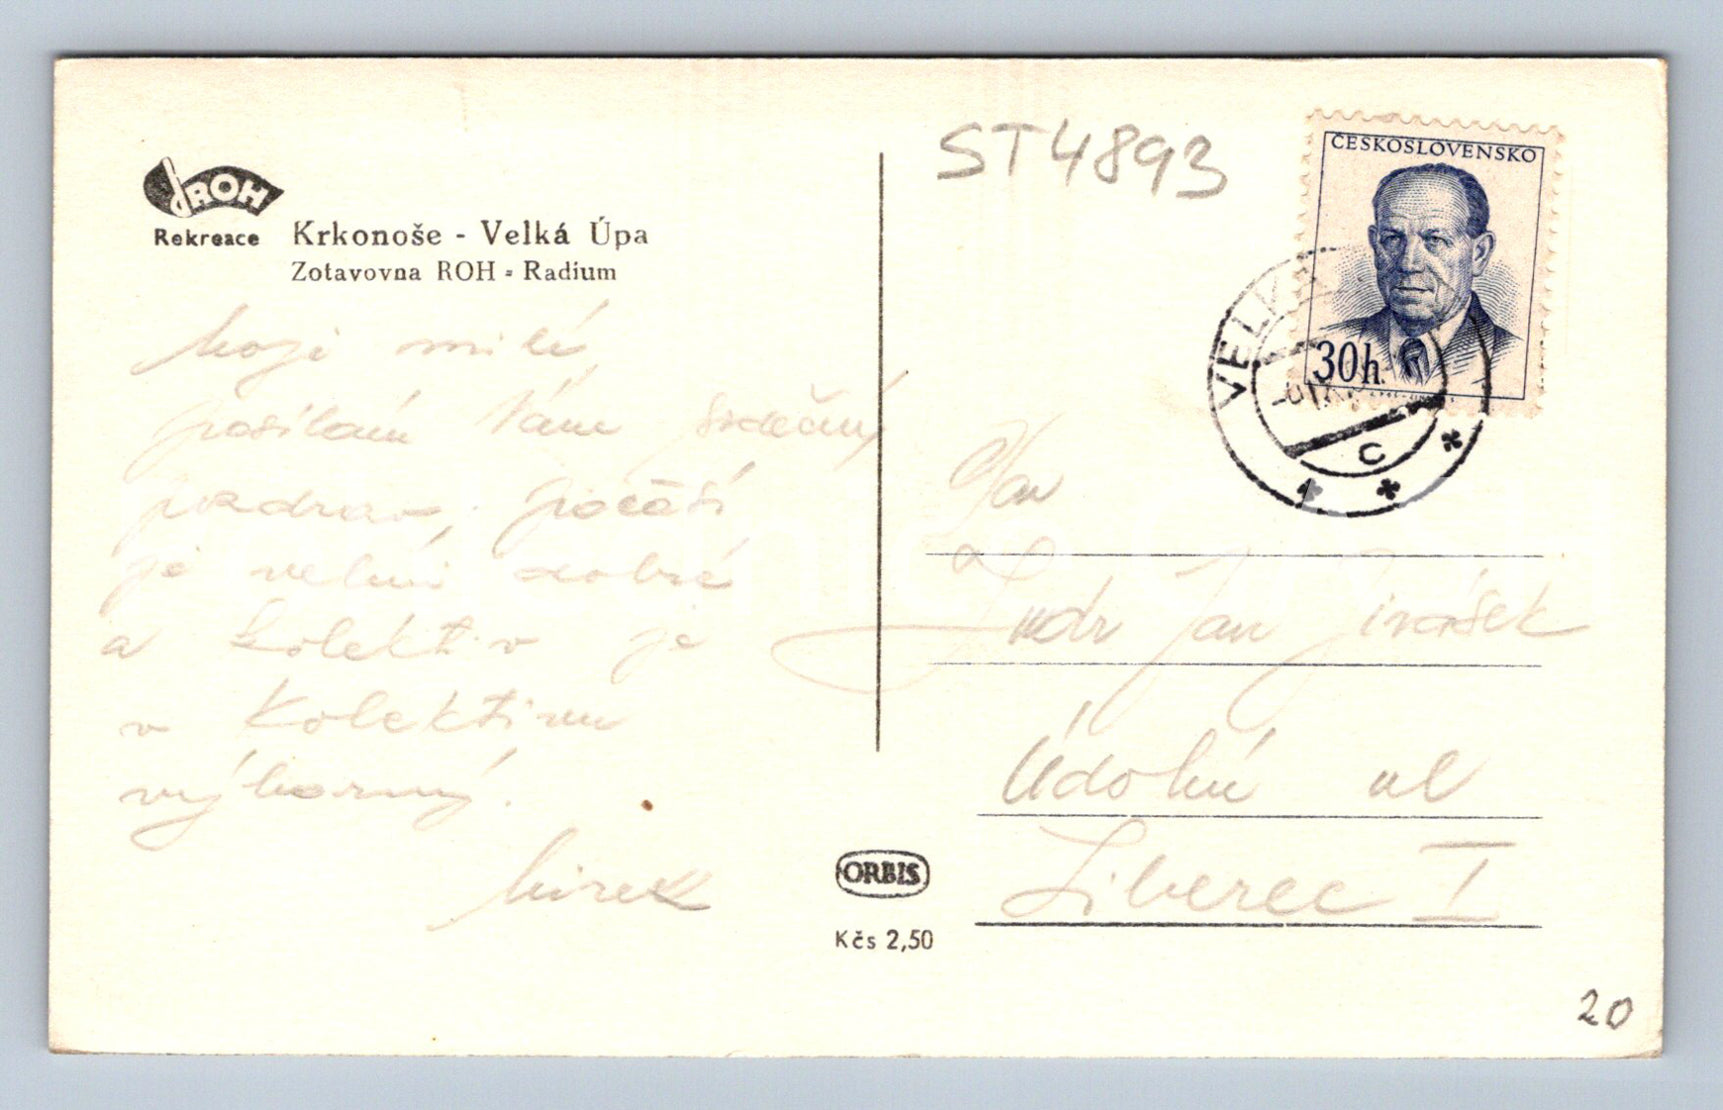 ROH
Rekreace
Krkonoše - Velká Úpa
Zotavovna ROH - Radium
ST4893
ČESKOSLOVENSKO
30h
VELKÁ
C
moji milí
posílám Vám srdečný
pozdrav, počasí
je velmi dobré
a kolektiv je
v kolektivu
výborný.
Mirek
Pan
Judr Jan Jirásek
Údolní ul
Liberec I
ORBIS
Kčs 2,50
20